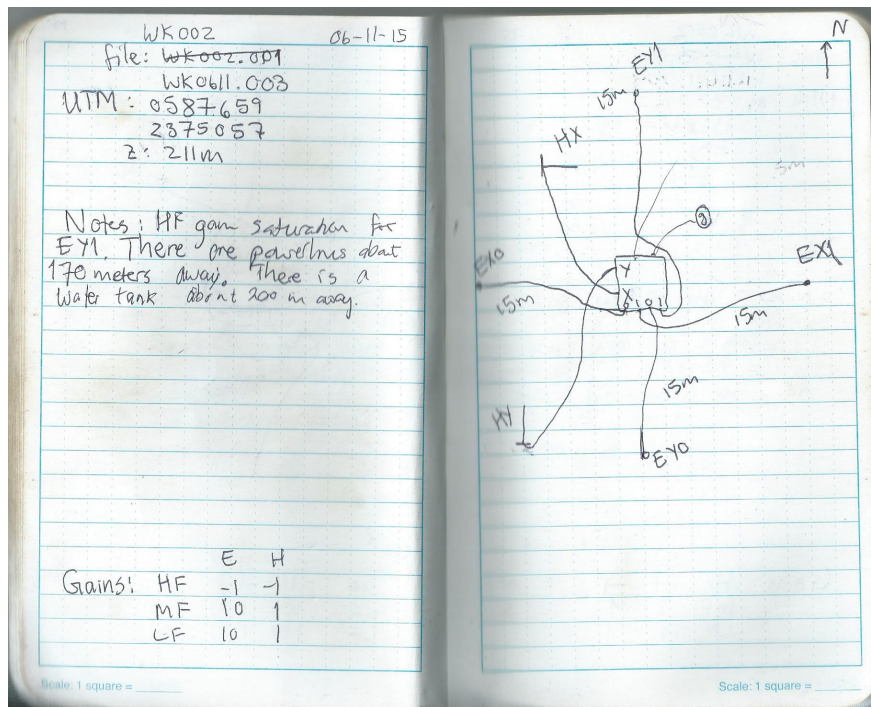 WK002 06-11-15
file: WK002.001
WK0611.003
UTM: 0587659
2375057
Z: 211m
Notes: HF gain saturation for
EY1. There are powerlines about
170 meters away. There is a
water tank about 200 m away.
E H
Gains: HF -1 -1
MF 10 1
LF 10 1
Scale: 1 square =
N
EY1
15m
HX
5m
g
Y
EX0
EX1
X
0 1 0 1
15m
15m
15m
HY
EY0
Scale: 1 square =